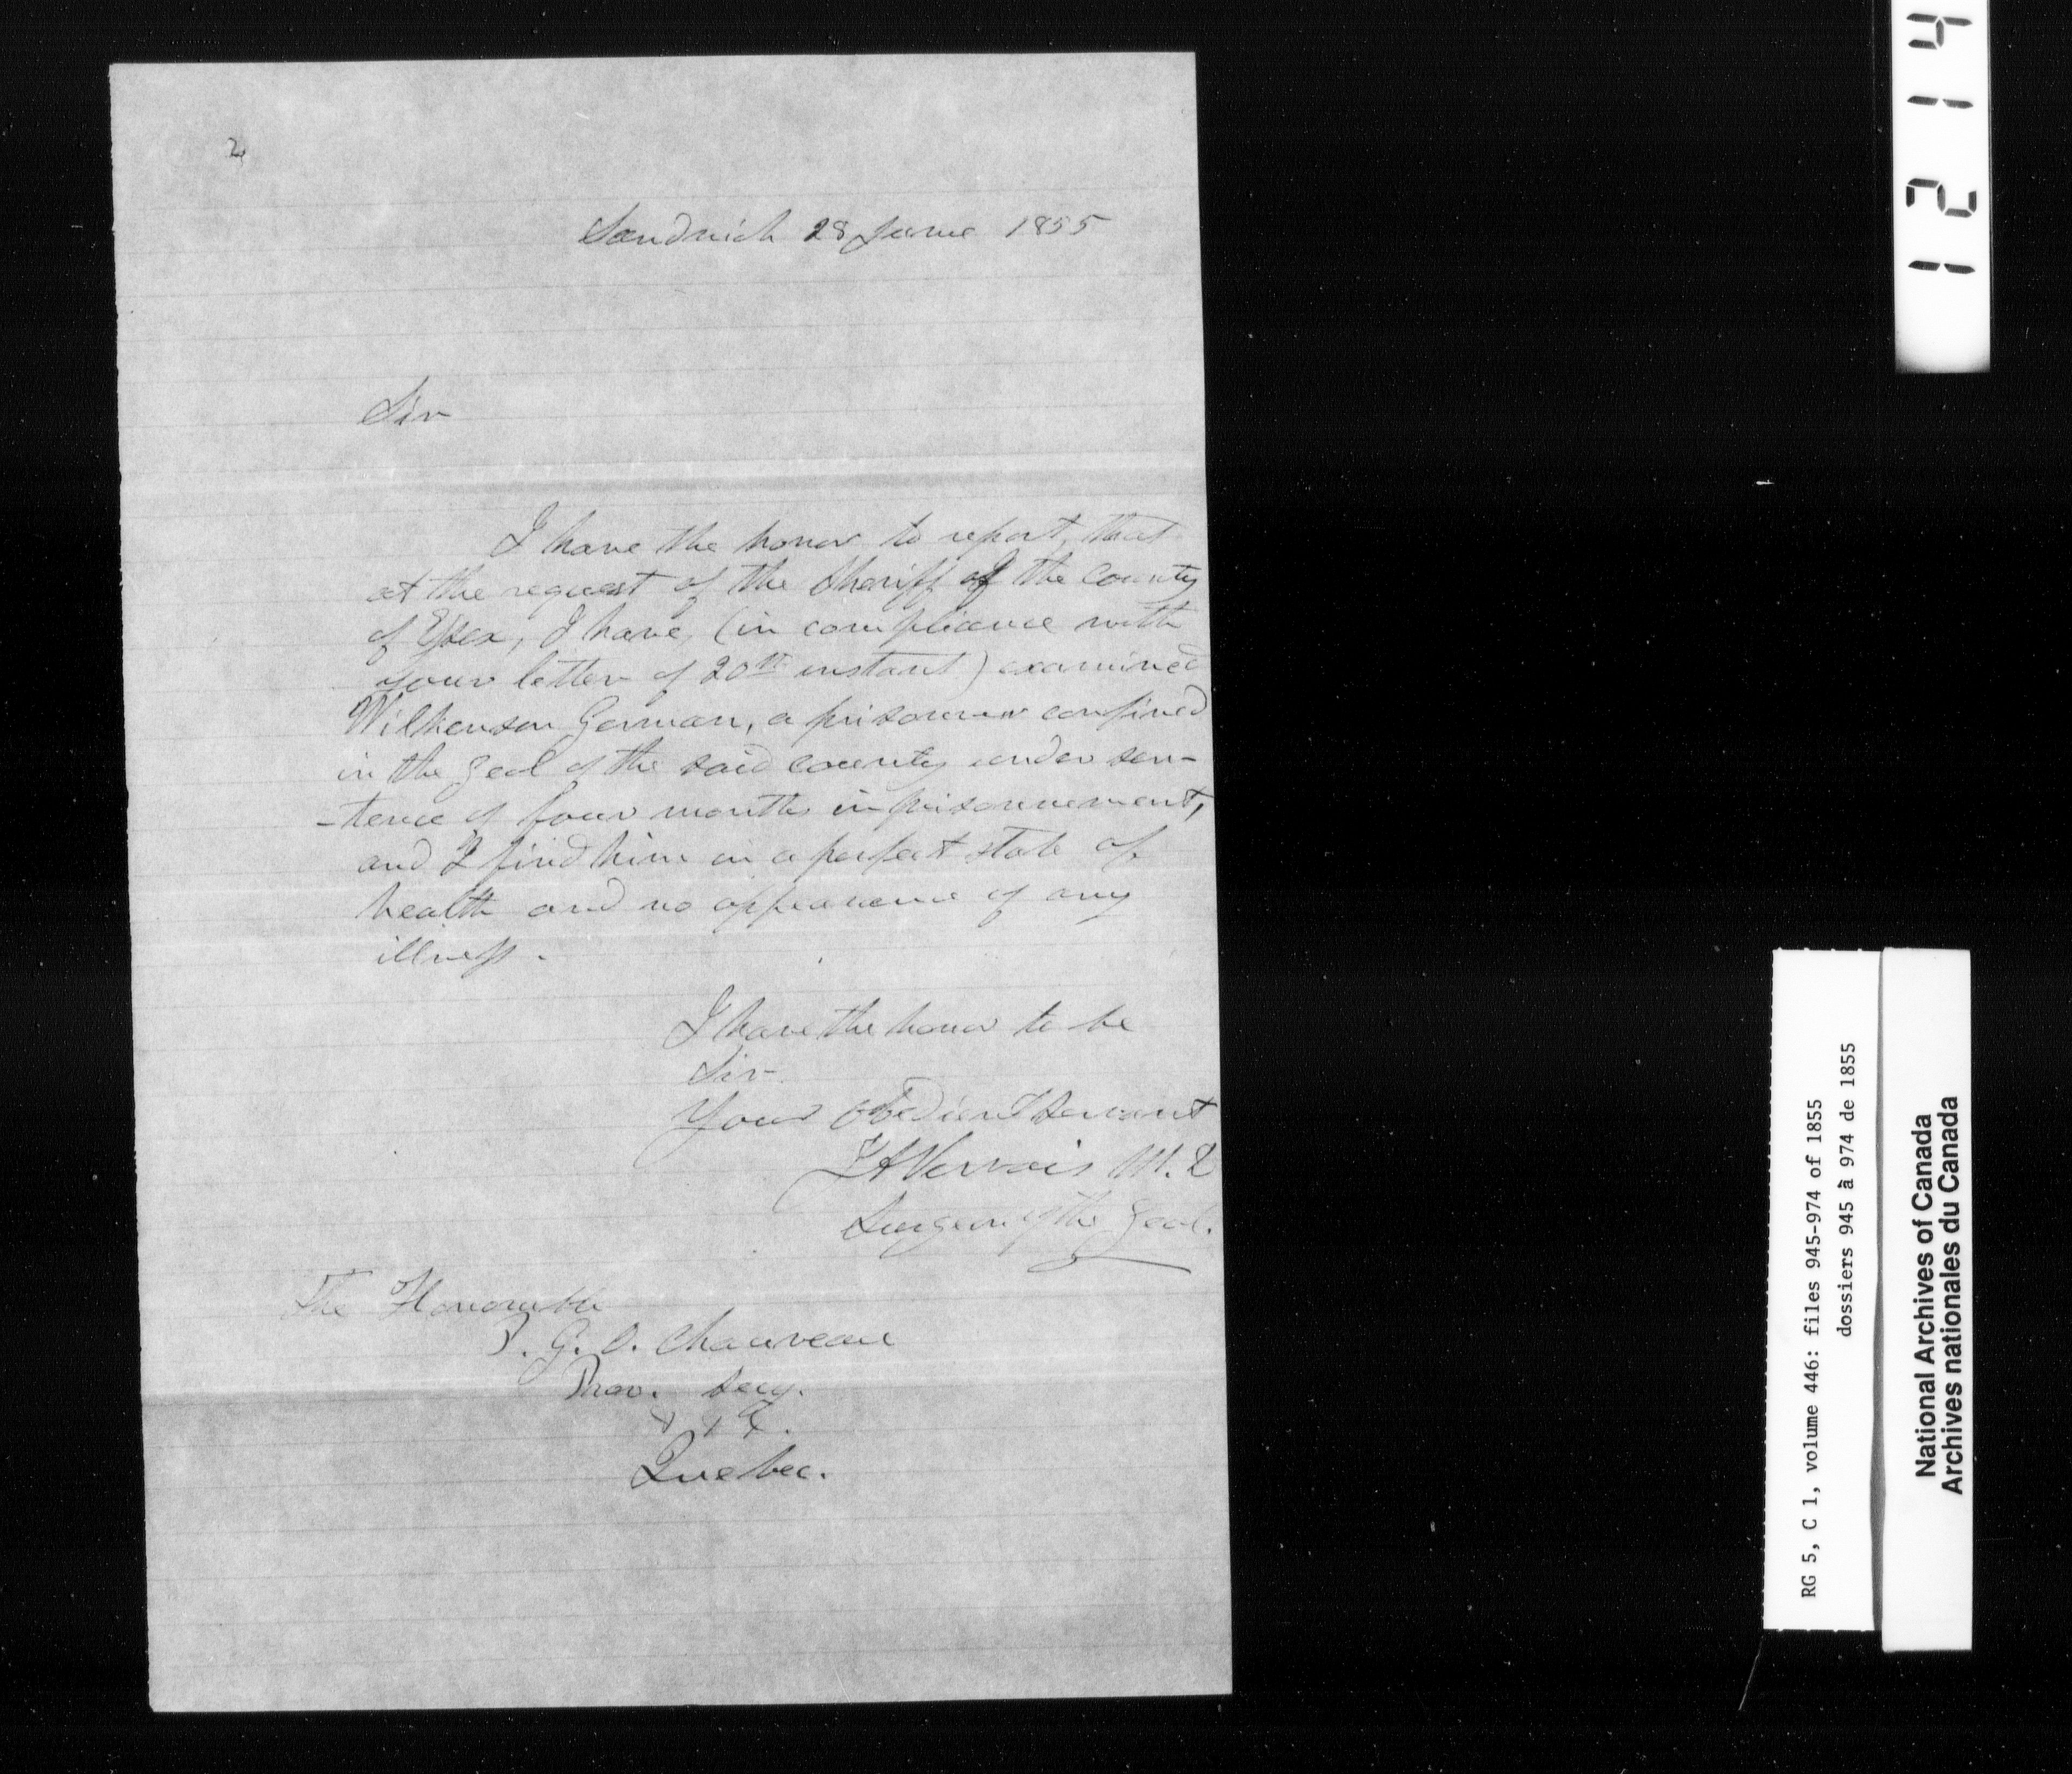 2
Sandwich 28 June 1855
Sir
I have the honor to report, that
at the request of the Sheriff of the County
of Essex, I have, (in compliance with
your letter of 20th instant) examined
Wilkenson German, a prisonner confined
in the Geol of the said county under sen-
-tence of four months imprisonnement,
and I find him in a perfect state of
health and no appearence of any
illness.
I have the honor to be
Sir
Your obedient servant
Vervais M.D
Surgeon of the Geol.
The Honorable
P. J. O. Chauveau
Prov. Secy.
Quebec.
1214
RG 5, C 1, volume 446: files 945-974 of 1855
dossiers 945 à 974 de 1855
National Archives of Canada
Archives nationales du Canada